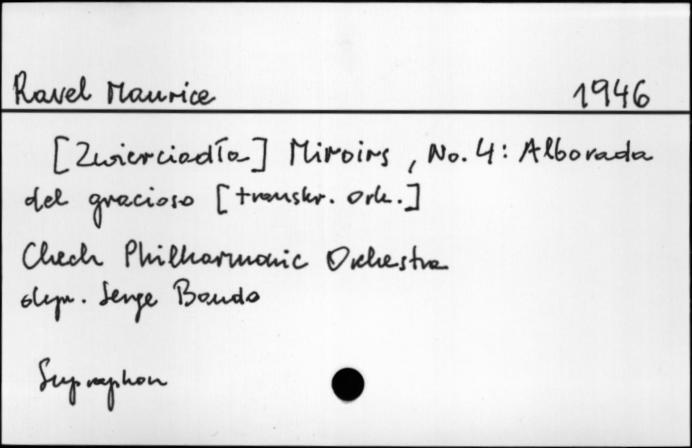 Ravel Maurice 1946
[Zwierciadła] Miroirs, No. 4: Alborada
del gracioso [transkr. ork.]
Chech Philharmonic Orchestra
dyr. Serge Baudo
Supraphon